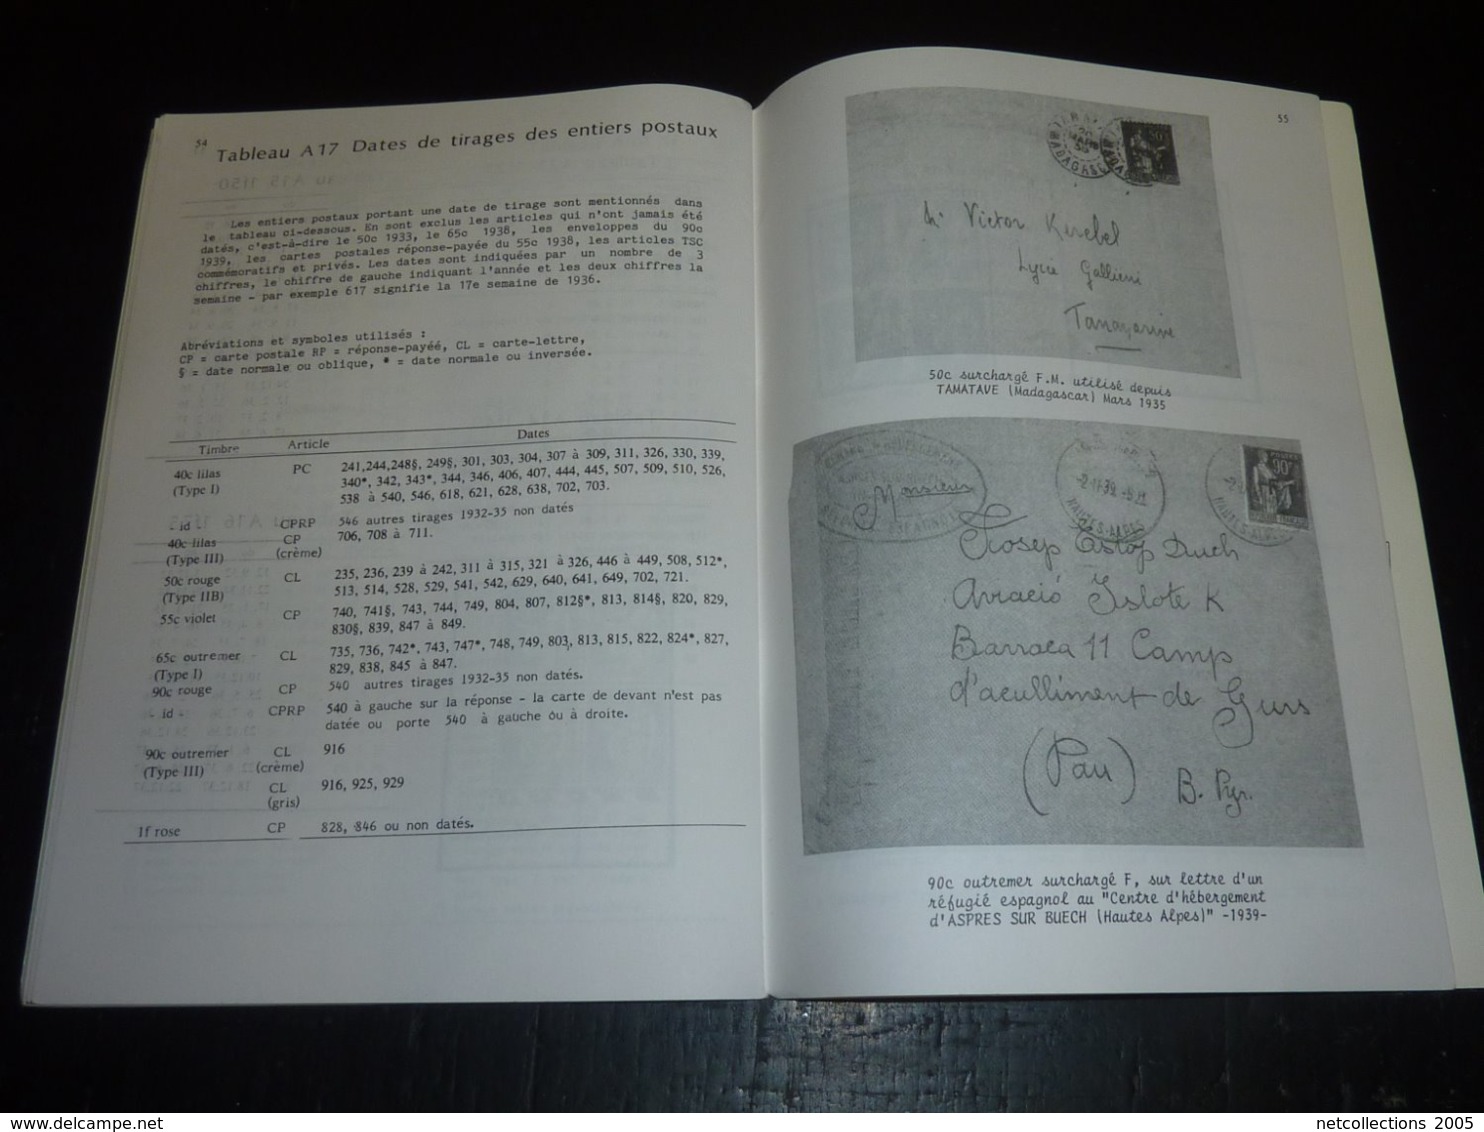 54
Tableau A17 Dates de tirages des entiers postaux
Les entiers postaux portant une date de tirage sont mentionnés dans
le tableau ci-dessous. En sont exclus les articles qui n'ont jamais été
datés, c'est-à-dire le 50c 1933, le 65c 1938, les enveloppes du 90c
1939, les cartes postales réponse-payée du 55c 1938, les articles TSC
commémoratifs et privés. Les dates sont indiquées par un nombre de 3
chiffres, le chiffre de gauche indiquant l'année et les deux chiffres la
semaine - par exemple 617 signifie la 17e semaine de 1936.
Abréviations et symboles utilisés :
CP = carte postale RP = réponse-payéé, CL = carte-lettre,
§ = date normale ou oblique, * = date normale ou inversée.
Timbre Article Dates
40c lilas PC 241,244,248§, 249§, 301, 303, 304, 307 à 309, 311, 326, 330, 339,
(Type I) 340*, 342, 343*, 344, 346, 406, 407, 444, 445, 507, 509, 510, 526,
538 à 540, 546, 618, 621, 628, 638, 702, 703.
- id - CPRP 546 autres tirages 1932-35 non datés
40c lilas CP 706, 708 à 711.
(Type III) (crème)
50c rouge CL 235, 236, 239 à 242, 311 à 315, 321 à 326, 446 à 449, 508, 512*,
(Type IIB) 513, 514, 528, 529, 541, 542, 629, 640, 641, 649, 702, 721.
55c violet CP 740, 741§, 743, 744, 749, 804, 807, 812§*, 813, 814§, 820, 829,
830§, 839, 847 à 849.
65c outremer CL 735, 736, 742*, 743, 747*, 748, 749, 803, 813, 815, 822, 824*, 827,
(Type I) 829, 838, 845 à 847.
90c rouge CP 540 autres tirages 1932-35 non datés.
- id - CPRP 540 à gauche sur la réponse - la carte de devant n'est pas
datée ou porte 540 à gauche ou à droite.
90c outremer CL 916
(Type III) (crème)
CL 916, 925, 929
(gris)
1f rose CP 828, 846 ou non datés.
55
Mr Victor Kerebel
Lycée Gallieni
Tananarive
50c surchargé F.M. utilisé depuis
TAMATAVE (Madagascar) Mars 1935
-2-11-39
HAUTES-ALPES
POSTES
90c
Monsieur
Josep Estop Duch
Aviació Islote K
Barraca 11 Camp
d'aculliment de Gurs
(Pau) B. Pyr.
90c outremer surchargé F, sur lettre d'un
réfugié espagnol au "Centre d'hébergement
d'ASPRES SUR BUECH (Hautes Alpes)" -1939-
www.delcampe.net
netcollections 2005